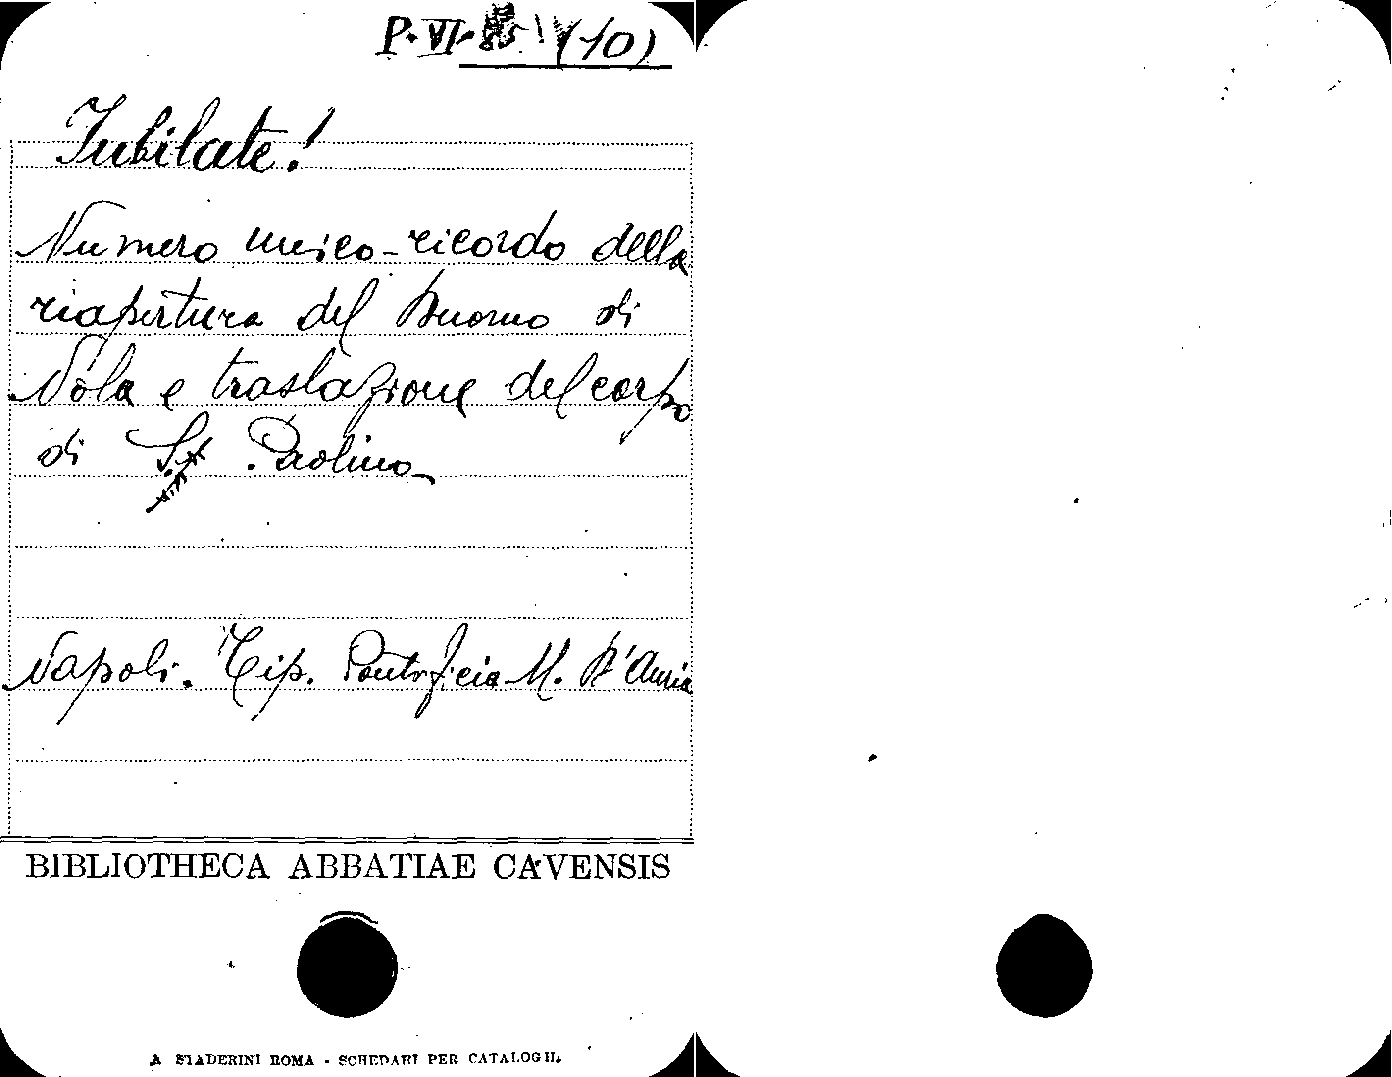 P. VI. (10)
Iubilate!
Numero unico-ricordo della
riapertura del Duomo di
Nola e traslazione del corpo
di S. Paolino
Napoli. Tip. Pontificia M. D'Auria
BIBLIOTHECA ABBATIAE CAVENSIS
A STADERINI ROMA - SCHEDARI PER CATALOGHI.